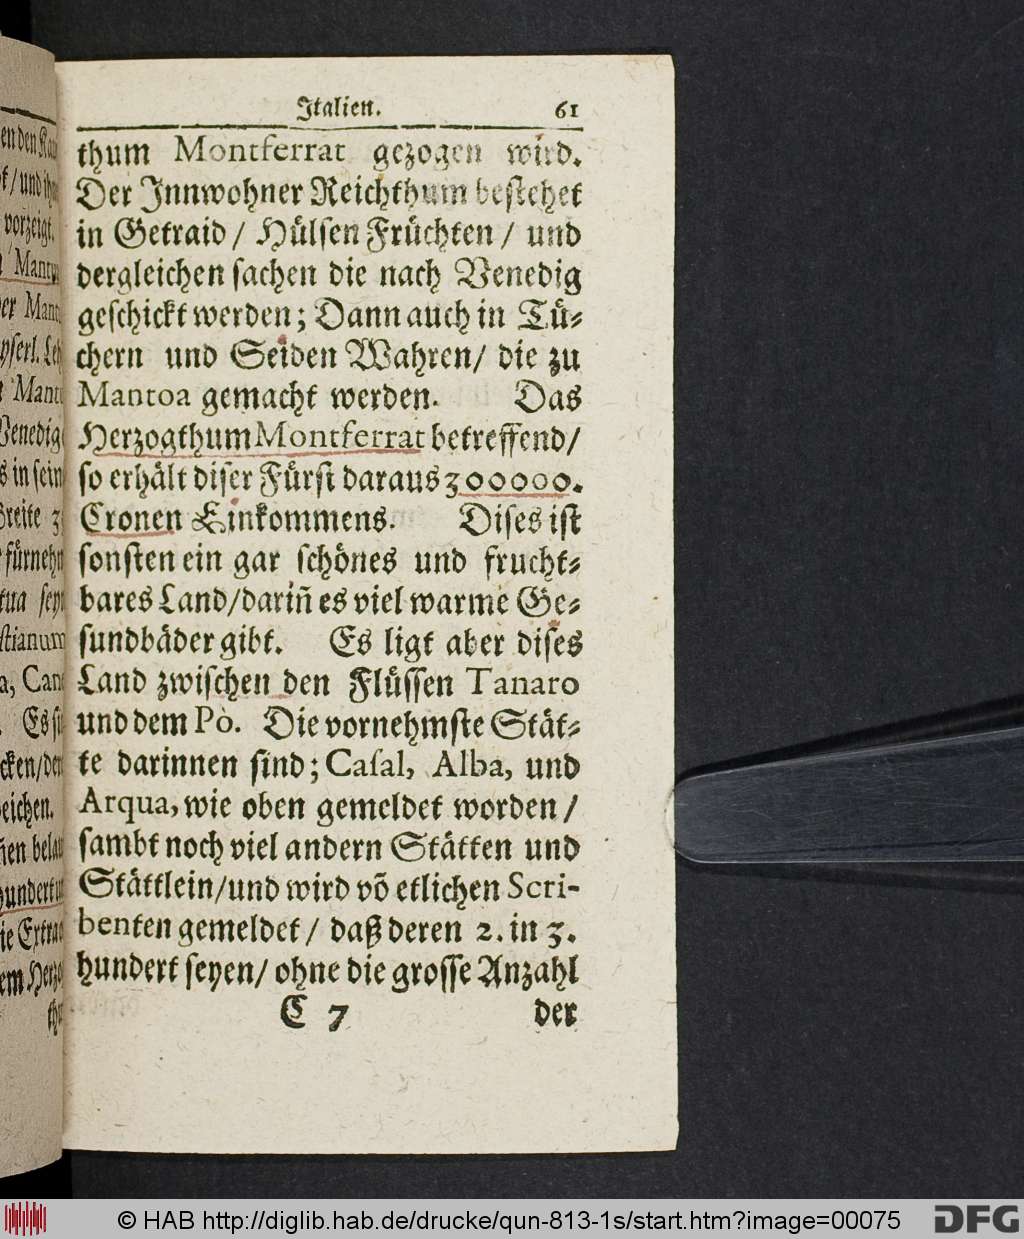 Italien. 61
thum Montferrat gezogen wird.
Der Innwohner Reichthum bestehet
in Getraid / Hülsen Früchten / und
dergleichen sachen die nach Venedig
geschickt werden; Dann auch in Tü-
chern und Seiden Wahren / die zu
Mantoa gemacht werden. Das
Herzogthum Montferrat betreffend /
so erhält diser Fürst daraus 300000.
Cronen Einkommens. Dises ist
sonsten ein gar schönes und frucht-
bares Land / dariñ es viel warme Ge-
sundbäder gibt. Es ligt aber dises
Land zwischen den Flüssen Tanaro
und dem Pò. Die vornehmste Stät-
te darinnen sind; Casal, Alba, und
Arqua, wie oben gemeldet worden /
sambt noch viel andern Stätten und
Stättlein / und wird võ etlichen Scri-
benten gemeldet / daß deren 2. in 3.
hundert seyen / ohne die grosse Anzahl
C 7 der
© HAB http://diglib.hab.de/drucke/qun-813-1s/start.htm?image=00075
DFG